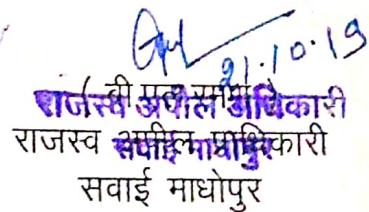 21.10.19
राजस्व अपील अधिकारी
राजस्व अपील प्राधिकारी
सवाई माधोपुर
सवाई माधोपुर